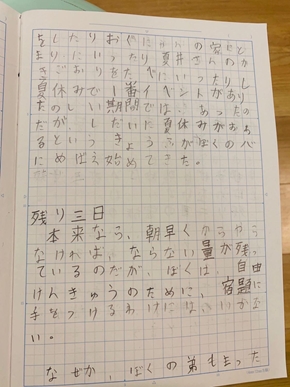 をしたりおぐにさんの家にと
まりにいったり夏井さんのか
きごおりをたべにいったりし
夏休みで一番イベントがあり
たのしい期間ではあったの
だが、しだいに夏休みがおち
るといっきょうふがぼくのバ
にめばえ始めてきた。
残り三日
本来なら、朝早くからやら
なければ、ならない量が残っ
ているのだが、ぼくは、自由
けんきゅうのために、宿題に
手をつけるわけにはいかな
い。
なぜか、ぼくの弟もまった